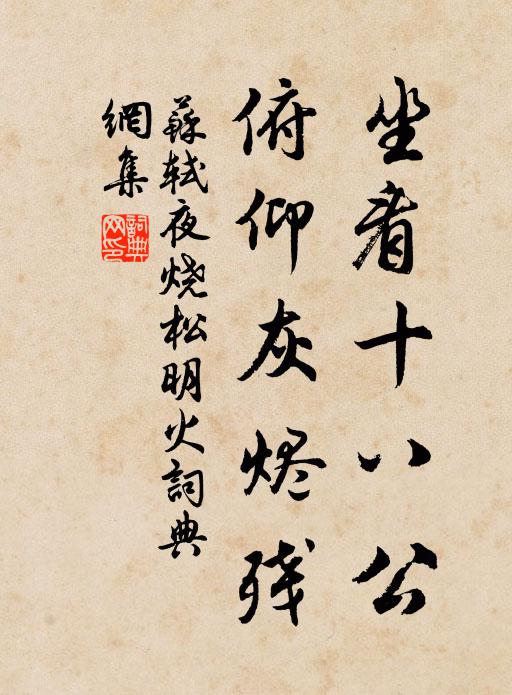 坐看十八公
俯仰灰烬残
蘇轼夜烧松明火詞典
網集
詞典网印